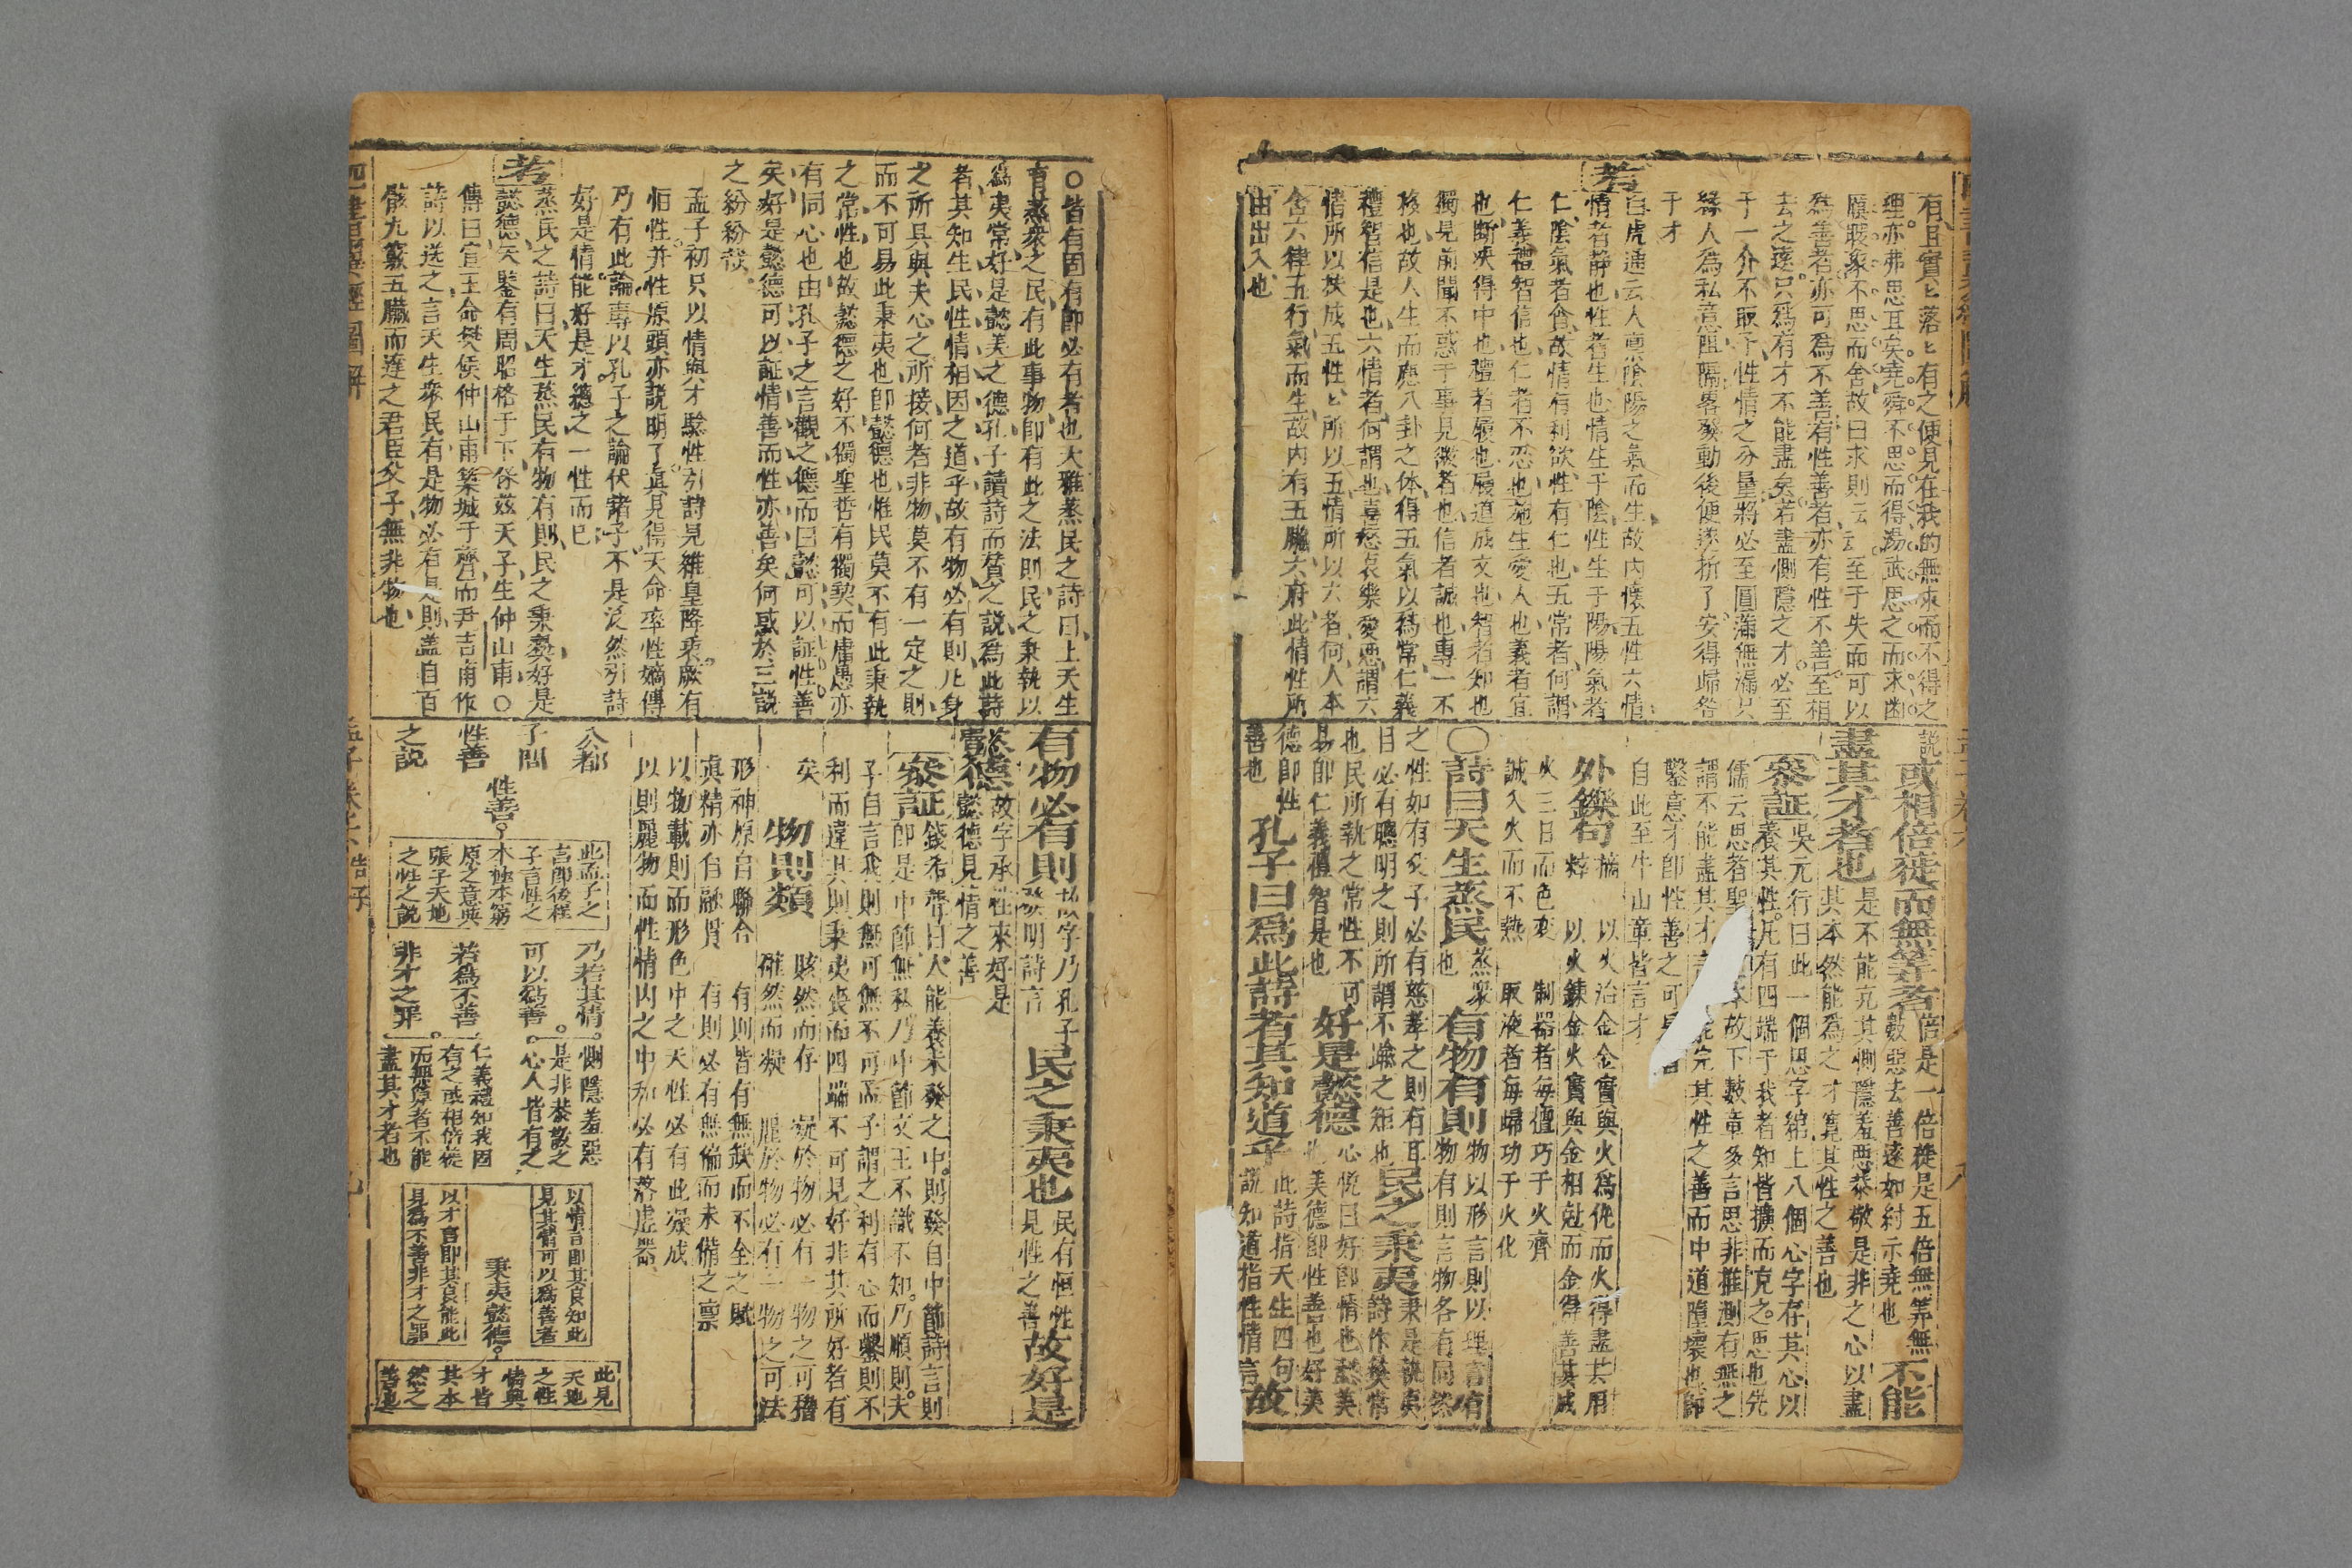 有且實〻落〻有之便見在我的無求而不得之
理亦弗思耳矣堯舜不思而得湯武思之而求
不思而舍故曰求則云云至于失而可以
為善者亦可為不善有性善者亦有性不善至相
去之遠只為有才不能盡矣若盡惻隱之才必至
于一介不取予性情之分量將必至圓滿無漏只
緣人為私意阻隔畧發動後便遂折了安得歸咎
于才
考
白虎通云人禀陰陽之氣而生故內懷五性六情
情者静也性者生也情生于陰性生于陽陽氣者
仁陰氣者貪故情有利欲性有仁也五常者何謂
仁義禮智信也仁者不忍也施生愛人也義者宜
也断决得中也禮者履也履道成文也智者知也
獨見前聞不惑于事見微者也信者誠也專一不
移也故人生而應八卦之体得五氣以為常仁義
禮智信是也六情者何謂也喜怒哀樂愛惡謂六
情所以扶成五性〻所以五情所以六者何人本
含六律五行氣而生故內有五臟六府此情性所
由出入也
說或相倍蓰而無筭者倍是一倍蓰是五倍無筭無
數惡去善遠如紂示堯也不能
盡其才者也是不能充其惻隱羞惡恭敬是非之心以盡
其本然能為之才寬其性之善也
參証吳元行曰此一個思字綰上八個心字存其心以
養其性凡有四端于我者知皆擴而充之思也先
儒云思者聖故下數章多言思非推測有無之
謂不能盡其才完其性之善而中道隳壞也師
鑿意才即性善之可
自此至牛山章皆言才
外鑠句
以火治金金實與火為侂而火得盡其用
以火鍊金火實與金相尅而金得善其成
火三日而色变 制器者每擅巧于火齊
誠入火而不熱 取液者每歸功于火化
○詩曰天生蒸民蒸衆也有物有則物以形言則以理言有
物有則言物各有同然
之性如有父子必有慈孝之則有耳
目必有聰明之則所謂不踰之矩也民之秉夷秉是執夷
詩作彝常
也民所執之常性不可
易即仁義禮智是也好是懿德心悅曰好即情也懿美
也美德即性善也好美
德即性
善也孔子曰為此詩者其知道乎此詩指天生四句
說知道指性情言故
○皆有固有即必有者也大雅蒸民之詩曰上天生
育蒸衆之民有此事物即有此之法則民之秉執以
為夷常好是懿美之德孔子讀詩而贊之說為此詩
者其知生民性情相因之道乎故有物必有則凡身
之所具與夫心之所接何者非物莫不有一定之則
而不可易此秉夷也即懿德也惟民莫不有此秉執
之常性也故懿德之好不獨聖哲有獨契而庸愚亦
有同心也由孔子之言觀之德而曰懿可以証性善
矣好是懿德可以証情善而性亦善矣何惑於三說
之紛紛哉
孟子初只以情與才驗性引詩見維皇降衷厥有
恒性并性原頭亦說明了直見得天命率性嫡傳
乃有此論專以孔子之論伏諸子不是泛然引詩
好是情能好是才總之一性而已
考
蒸民之詩曰天生蒸民有物有則民之秉彝好是
懿德天鑒有周昭格于下保茲天子生仲山甫○
傳曰宣王命樊侯仲山甫築城于齊而尹吉甫作
詩以送之言天生衆民有是物必有是則盖自百
骸九竅五臟而達之君臣父子無非物也
有物必有則故字乃孔子
發明詩言民之秉夷也民有恒性
見性之善故好是
懿德故字承性來好是
懿德見情之善
參証錢希聲曰人能養未發之中則發自中節詩言則
即是中節無私乃中節文王不識不知乃順則夫
子自言我則無可無不可孟子謂之利有心而鑿則不
利而違其則秉夷喪而四端不可見好非其所好者有
矣
物則類 賅然而存 凝於物必有一物之可稽
確然而凝 麗於物必有一物之可法
形神原自聯合 有則皆有無缺而不全之賦
真精亦自融貫 有則必有無偏而未備之禀
以物載則而形色中之天性必有此凝成
以則麗物而性情內之中和必有落虛器
公都
子問
性善
之說
性善
此孟子之
言即後程
子言性之
本極本窮
原之意與
張子天地
之性之說
乃若其情
可以為善
若為不善
非才之罪
惻隱羞惡
是非恭敬之
心人皆有之
仁義禮知我固
有之或相倍蓰
而無筭者不能
盡其才者也
以情言即其良知此
見其情可以為善者
秉夷懿德
以才言即其良能此
見為不善非才之罪
此見
天地
之性
情與
才皆
其本
然之
善也
四書圖解
孟子卷六告子
九